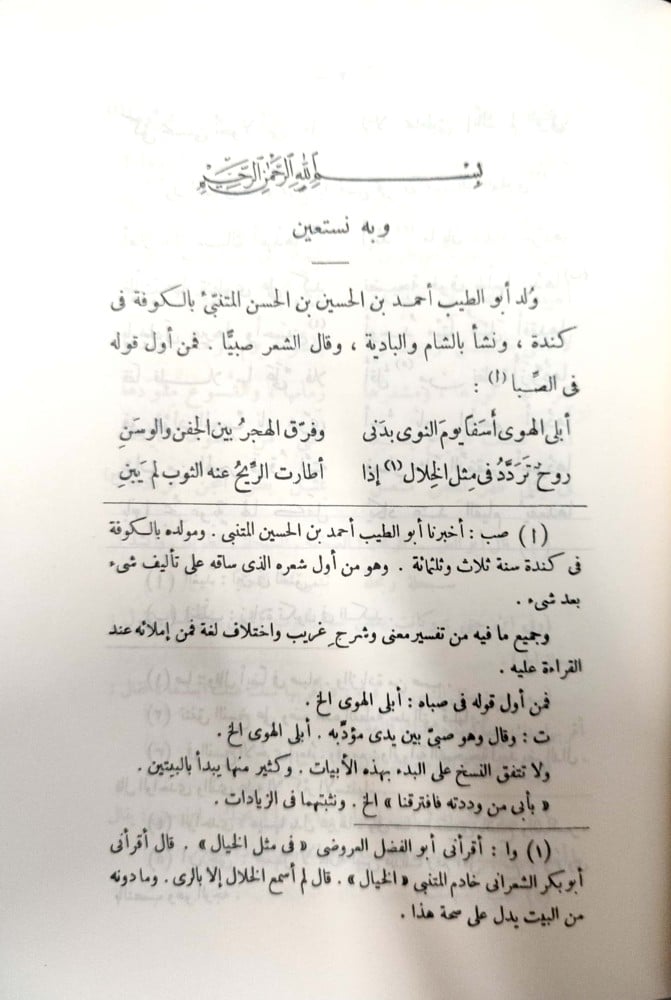 بسم الله الرحمن الرحيم
وبه نستعين
وُلد أبو الطيب أحمد بن الحسين بن الحسن المتنبّئ بالكوفة فى
كندة ، ونشأ بالشام والبادية ، وقال الشعر صبيًّا . فمن أول قوله
فى الصِّبا (أ) :
أبلى الهوى أسَفًا يومَ النوى بدنى وفرّق الهجرُ بين الجفن والوسَنِ
روحٌ تَرَدَّدُ فى مِثل الخِلال (١) إذا أطارت الرِّيحُ عنه الثوب لم يَبِنِ
(أ) صب : أخبرنا أبو الطيب أحمد بن الحسين المتنبى . ومولده بالكوفة
فى كندة سنة ثلاث وثلثمائة . وهو من أول شعره الذى ساقه على تأليف شىء
بعد شىء .
وجميع ما فيه من تفسير معنى وشرح غريب واختلاف لغة فمن إملائه عند
القراءة عليه .
فمن أول قوله فى صباه : أبلى الهوى الخ .
ت : وقال وهو صبىّ بين يدى مؤدّبه . أبلى الهوى الخ .
ولا تتفق النسخ على البدء بهذه الأبيات . وكثير منها يبدأ بالبيتين .
« بأبى من وددته فافترقنا » الخ . ونثبتهما فى الزيادات .
(١) وا : أقرأنى أبو الفضل العروضى « فى مثل الخيال » . قال أقرأنى
أبو بكر الشعرانى خادم المتنبى « الخيال » . قال لم أسمع الخلال إلا بالرى . وما دونه
من البيت يدل على صحة هذا .